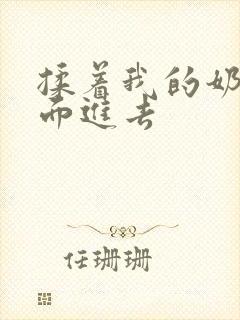 揉着我的奶
而进去
任珊珊